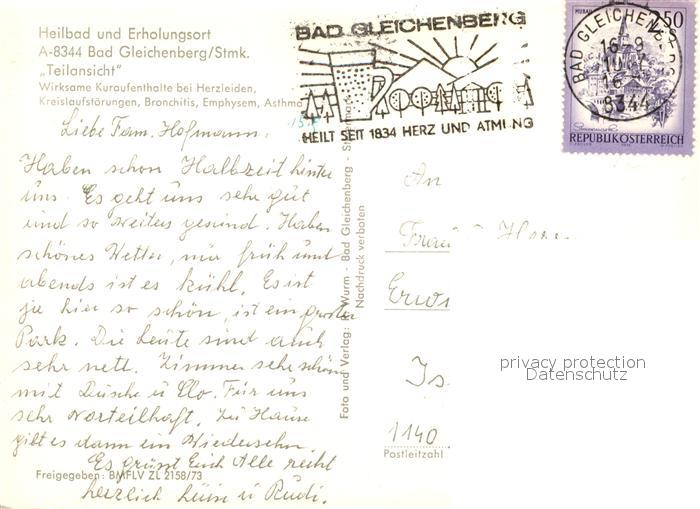 Heilbad und Erholungsort
A-8344 Bad Gleichenberg/Stmk.
„Teilansicht"
Wirksame Kuraufenthalte bei Herzleiden,
Kreislaufstörungen, Bronchitis, Emphysem, Asthma
BAD GLEICHENBERG
HEILT SEIT 1834 HERZ UND ATMUNG
BAD GLEICHENBERG
8344
2.50
REPUBLIK ÖSTERREICH
Liebe Fam. Hofmann,
Haben schon Halbzeit hinter
uns. Es geht uns sehr gut
und so weiters gesund. Haben
schönes Wetter, nur früh und
abends ist es kühl. Es ist
ja hier so schön, ist ein großer
Park. Die Leute sind auch
sehr nett. Zimmer sehr schön
mit Dusche u Clo. Für uns
sehr vorteilhaft. Zu Hause
gibt es dann ein Wiedersehn.
Es grüsst Euch Alle recht
herzlich u Rudi.
Freigegeben: BMFLV ZL 2158/73
Foto und Verlag: Wurm - Bad Gleichenberg -
Nachdruck verboten
An
1140
Postleitzahl
privacy protection
Datenschutz